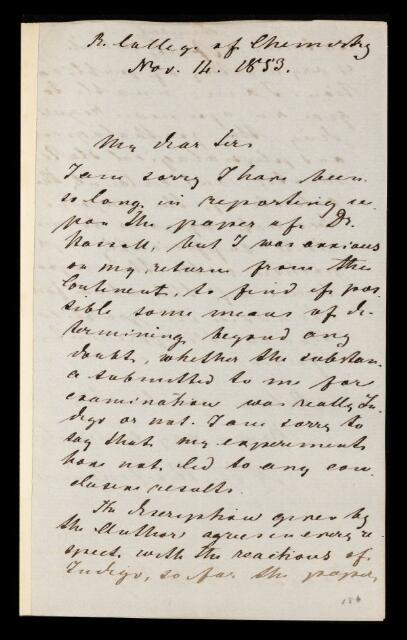 R. College of Chemistry
Nov. 14. 1853.
My dear Sir
I am sorry I have been
so long in reporting u-
pon the paper of Dr.
Hassall, but I was anxious
on my return from the
Continent, to find if pos-
sible some means of de-
termining beyond any
doubt, whether the substan-
ce submitted to me for
examination was really In-
digo or not. I am sorry to
say that my experiments
have not led to any con-
clusive results.
The description given by
the Author agrees in every re-
spect with the reactions of
Indigo, so far the paper
186